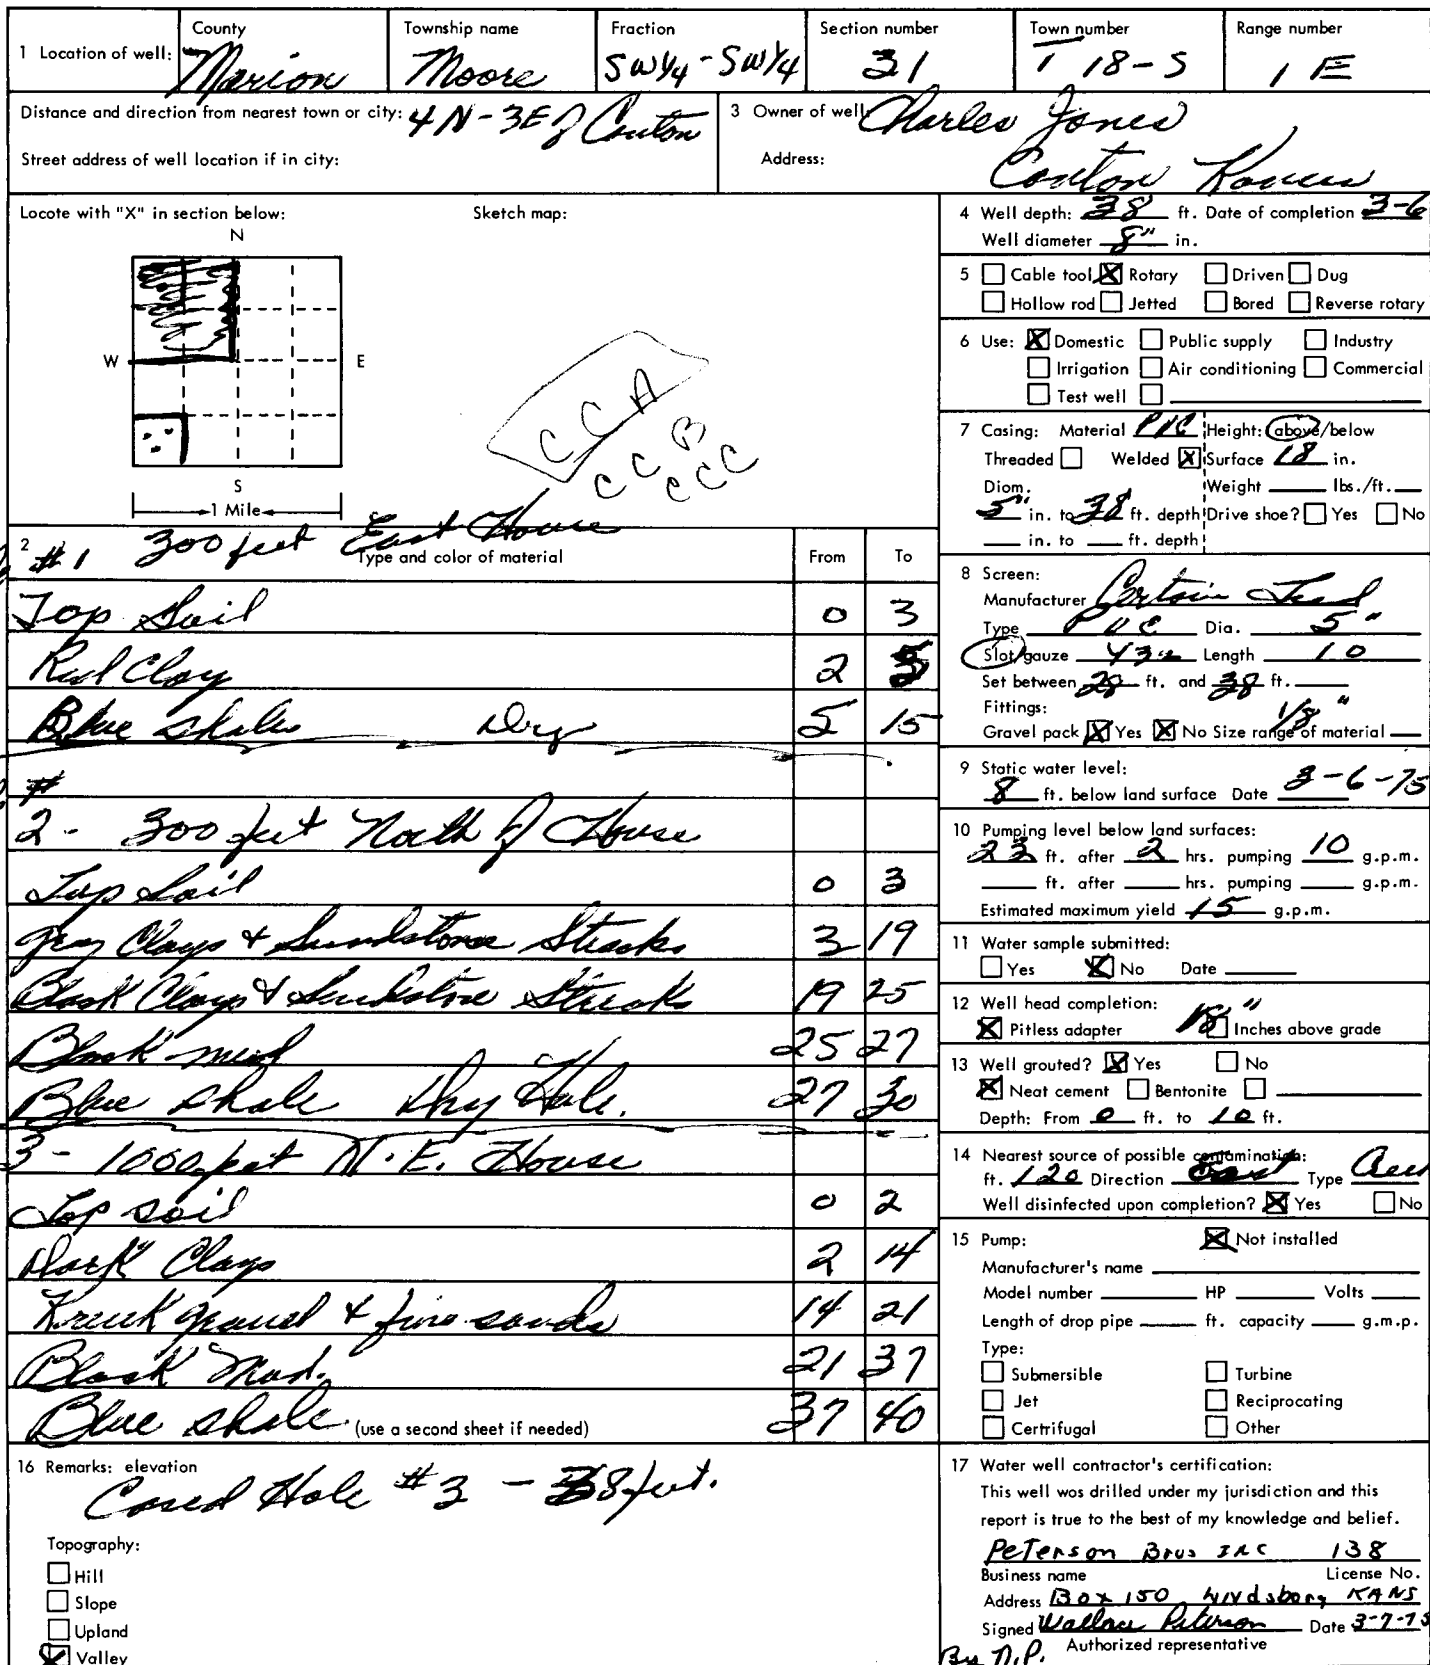 1 Location of well: County Marion Township name Moore Fraction SW1/4-SW1/4 Section number 31 Town number T 18-S Range number 1 E
Distance and direction from nearest town or city: 4N-3E of Canton
Street address of well location if in city:
3 Owner of well: Charles Jones
Address: Canton Kansas
Locate with "X" in section below:
Sketch map:
N
W
E
S
1 Mile
CCA
CCB
CCC
2 #1 300 feet East House
Type and color of material From To
Top Soil 0 3
Red Clay 2 5
Blue shales Dry 5 15
#
2- 300 feet North of House
Top Soil 0 3
Gray Clays & Sandstone Streaks 3 19
Black Clays & Sandstone Streaks 19 25
Black mud 25 27
Blue shale Dry Hole. 27 30
3- 1000 feet N.E. House
Top soil 0 2
Dark Clays 2 14
Kreek gravel & fine sands 14 21
Black Mud. 21 37
Blue shale. (use a second sheet if needed) 37 40
16 Remarks: elevation
Cased Hole #3 - 38 feet.
Topography:
Hill
Slope
Upland
Valley
4 Well depth: 38 ft. Date of completion 3-6
Well diameter 8" in.
5 Cable tool Rotary Driven Dug
Hollow rod Jetted Bored Reverse rotary
6 Use: Domestic Public supply Industry
Irrigation Air conditioning Commercial
Test well
7 Casing: Material PVC Height: above/below
Threaded Welded Surface 18 in.
Diam. Weight lbs./ft.
5" in. to 38 ft. depth Drive shoe? Yes No
in. to ft. depth
8 Screen:
Manufacturer Certain Teed
Type PVC Dia. 5"
Slot/gauze Length 10
Set between 28 ft. and 38 ft.
Fittings: 1/8"
Gravel pack Yes No Size range of material
9 Static water level:
8 ft. below land surface Date 3-6-75
10 Pumping level below land surfaces:
23 ft. after 2 hrs. pumping 10 g.p.m.
ft. after hrs. pumping g.p.m.
Estimated maximum yield 15 g.p.m.
11 Water sample submitted:
Yes No Date
12 Well head completion:
Pitless adapter 18" Inches above grade
13 Well grouted? Yes No
Neat cement Bentonite
Depth: From 0 ft. to 10 ft.
14 Nearest source of possible contamination:
ft. 120 Direction East Type
Well disinfected upon completion? Yes No
15 Pump: Not installed
Manufacturer's name
Model number HP Volts
Length of drop pipe ft. capacity g.m.p.
Type:
Submersible Turbine
Jet Reciprocating
Certrifugal Other
17 Water well contractor's certification:
This well was drilled under my jurisdiction and this
report is true to the best of my knowledge and belief.
Peterson Bros INC 138
Business name License No.
Address Box 150 Lindsborg KANS
Signed Wallace Peterson Date 3-7-75
Authorized representative
By N.P.